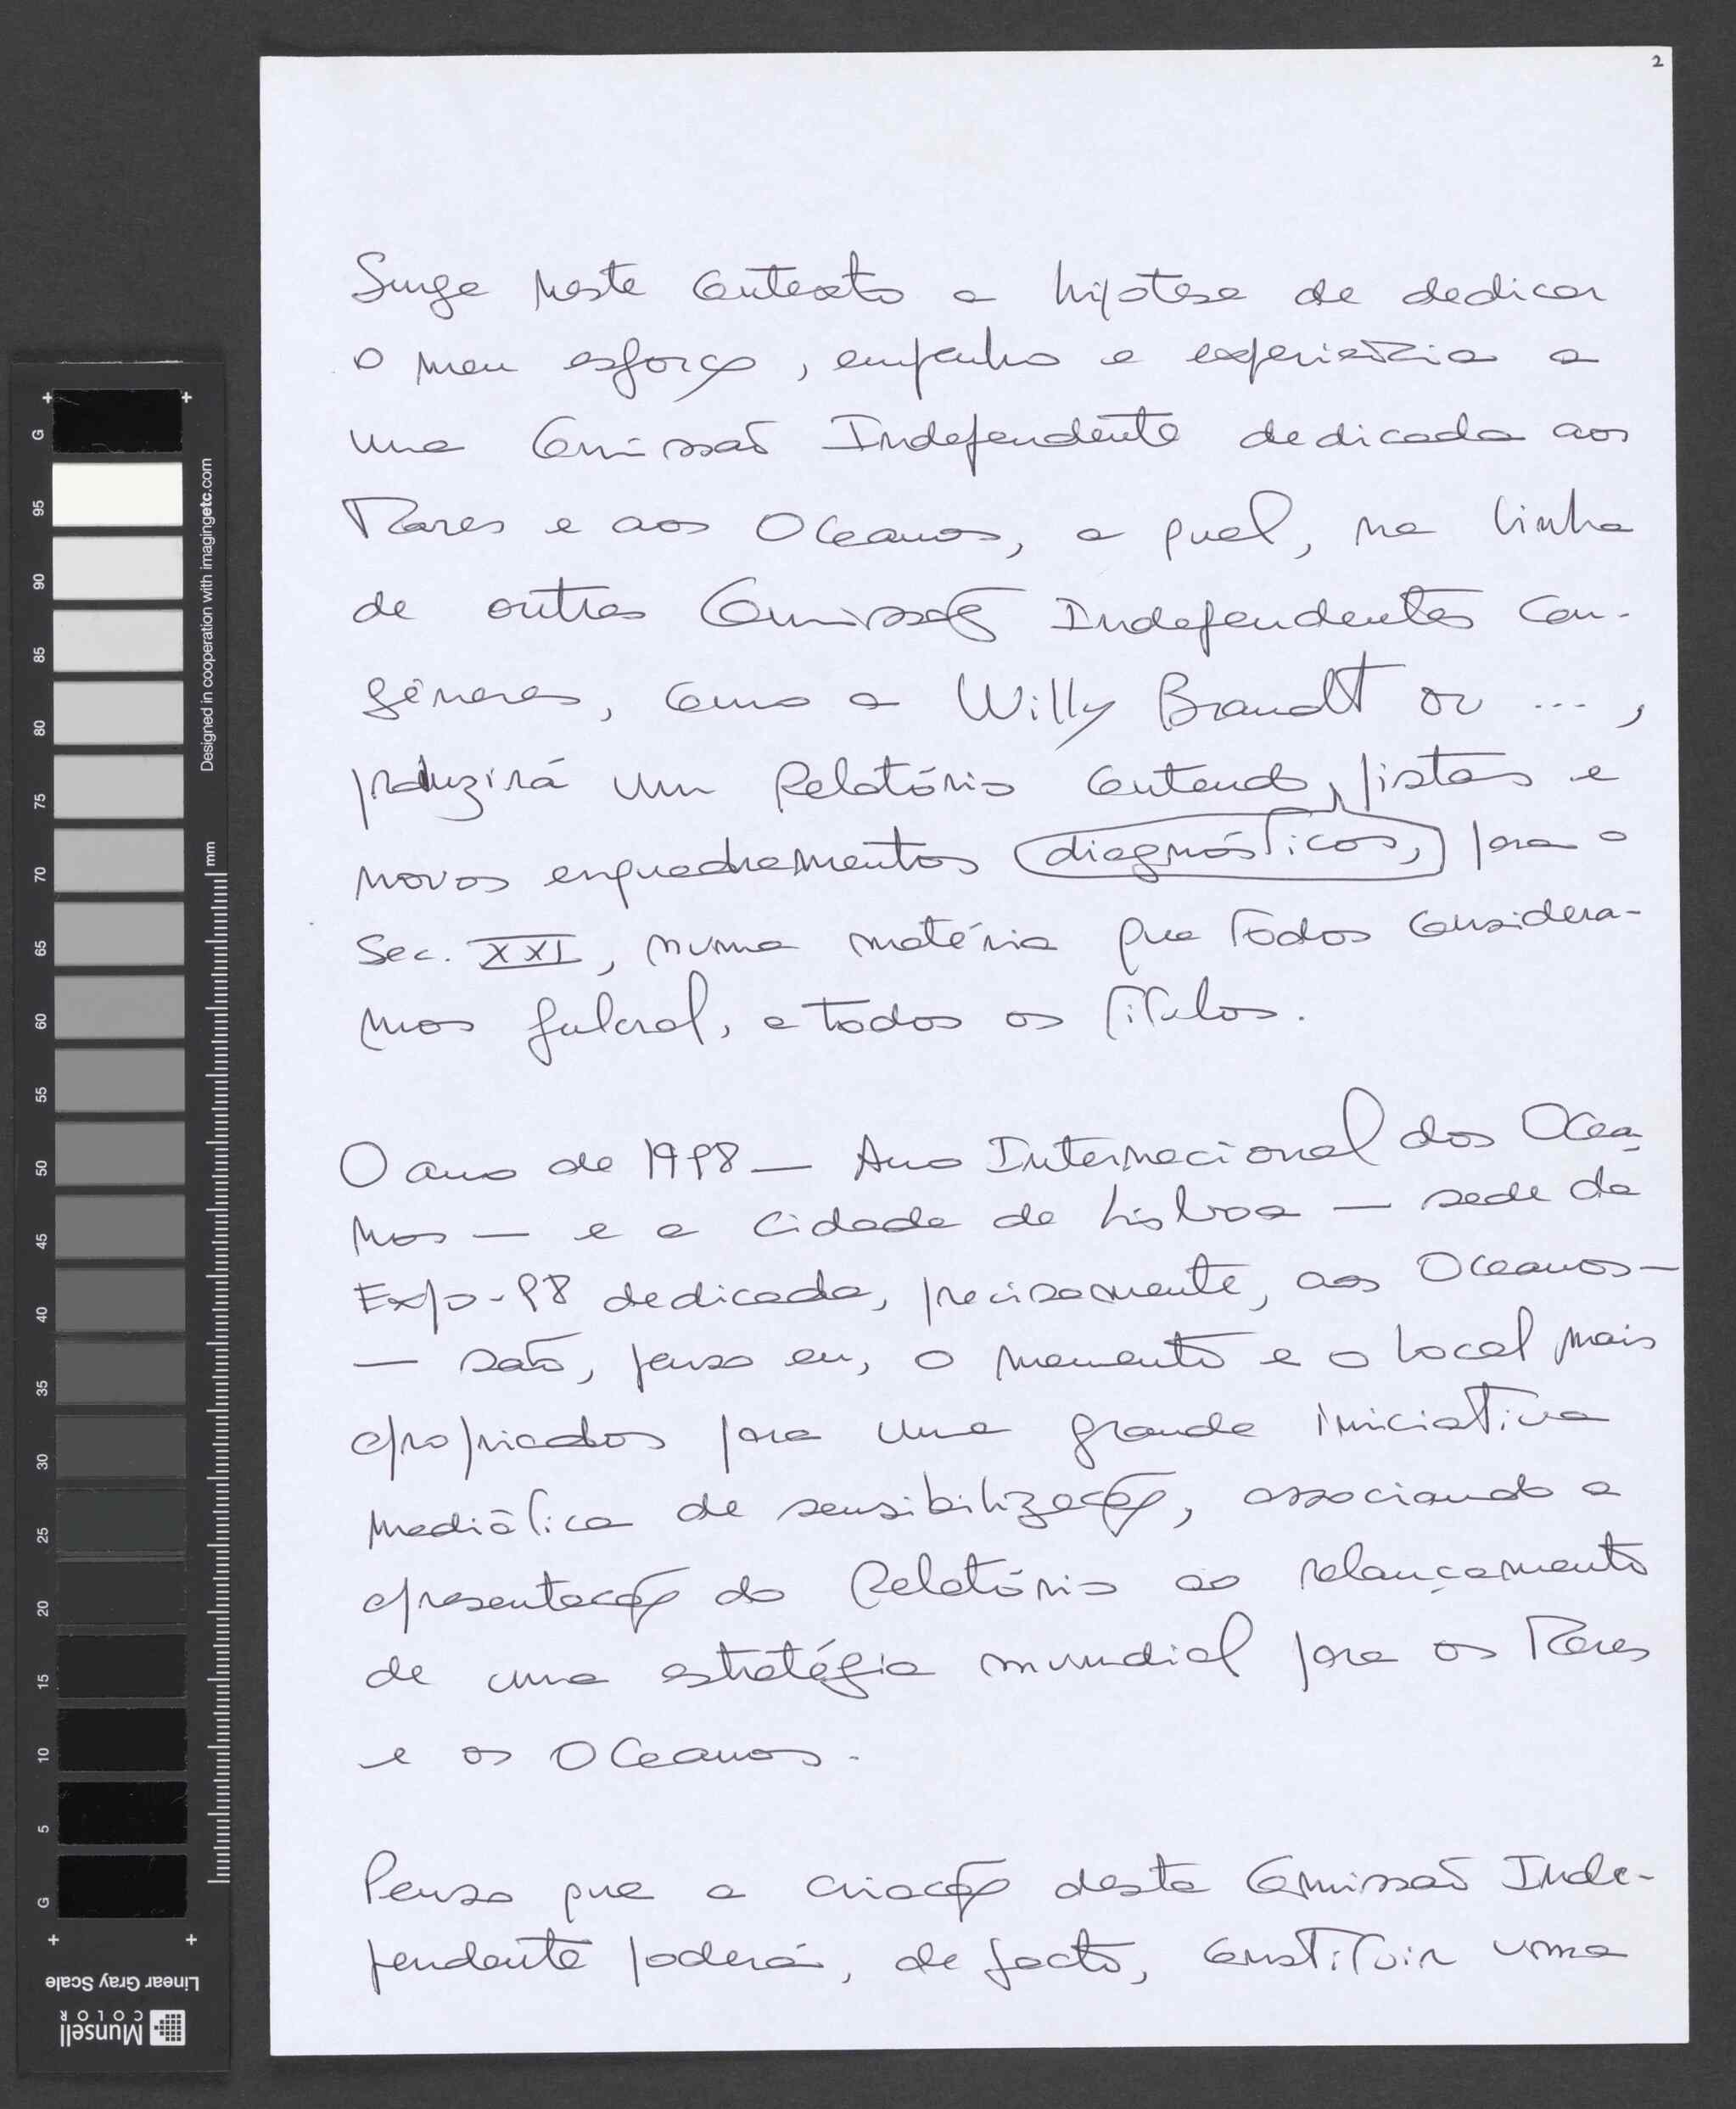 2
Surge neste contexto a hipotese de dedicar
o meu esforço, empenho e experiência a
uma Comissão Independente dedicada aos
Mares e aos Oceanos, a qual, na linha
de outras Comissões Independentes con-
géneres, como a Willy Brandt ou ...,
produzirá um Relatório contendo pistas e
novos enquadramentos diagnósticos, para o
Sec. XXI, numa matéria que todos considera-
mos fulcral, a todos os títulos.
O ano de 1998 — Ano Internacional dos Ocea-
nos — e a cidade de Lisboa — sede da
Expo-98 dedicada, precisamente, aos Oceanos —
— são, penso eu, o momento e o local mais
apropriados para uma grande iniciativa
mediática de sensibilização, associando a
apresentação do Relatório ao relançamento
de uma estratégia mundial para os Mares
e os Oceanos.
Penso que a criação desta Comissão Inde-
pendente poderá, de facto, constituir uma
G
95
90
85
80
75
70
65
60
55
50
45
40
35
30
25
20
15
10
5
G
Designed in cooperation with imagingetc.com
mm
Linear Gray Scale
Munsell
COLOR